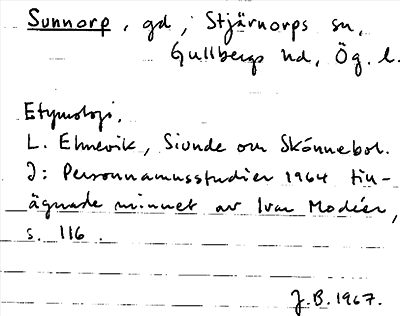 Sunnorp, gd, Stjärnorps sn,
Gullbergs hd, Ög. l.
Etymologi.
L. Elmevik, Siunde och Skönnebol.
I: Personnamnsstudier 1964 till-
ägnade minnet av Ivar Modéer,
s. 116.
J.B. 1967.